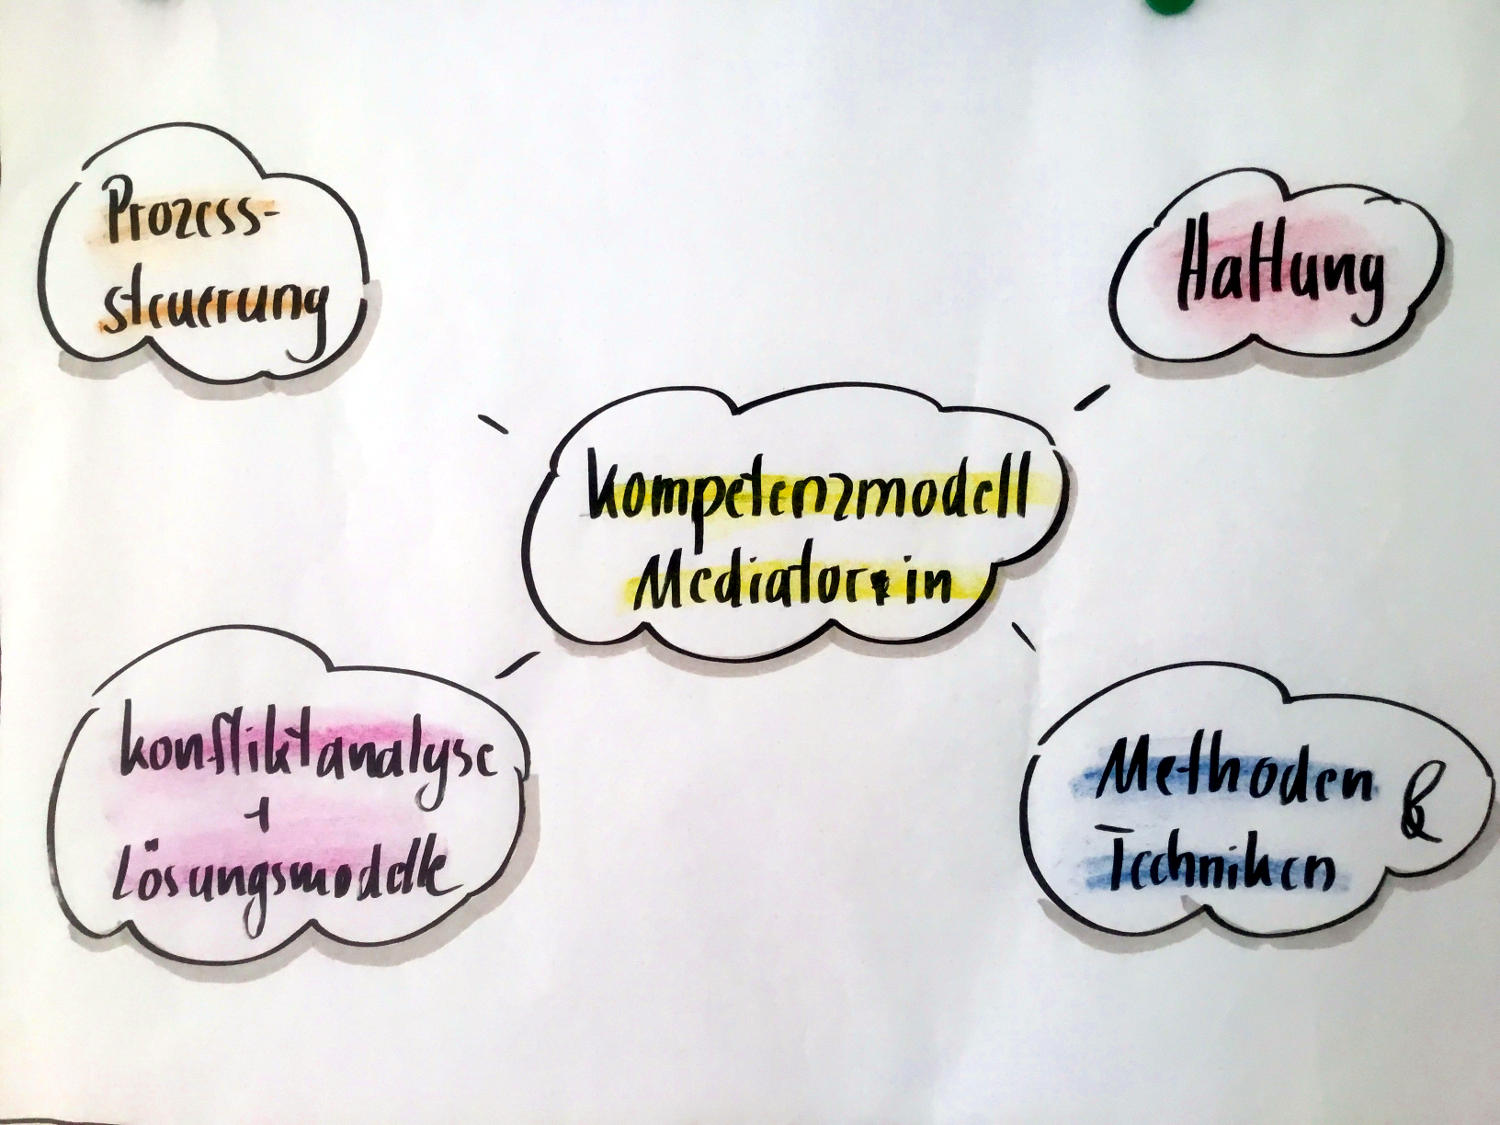 Prozess-
steuerung
Haltung
Kompetenzmodell
Mediator*in
Konfliktanalyse
+
Lösungsmodelle
Methoden &
Techniken